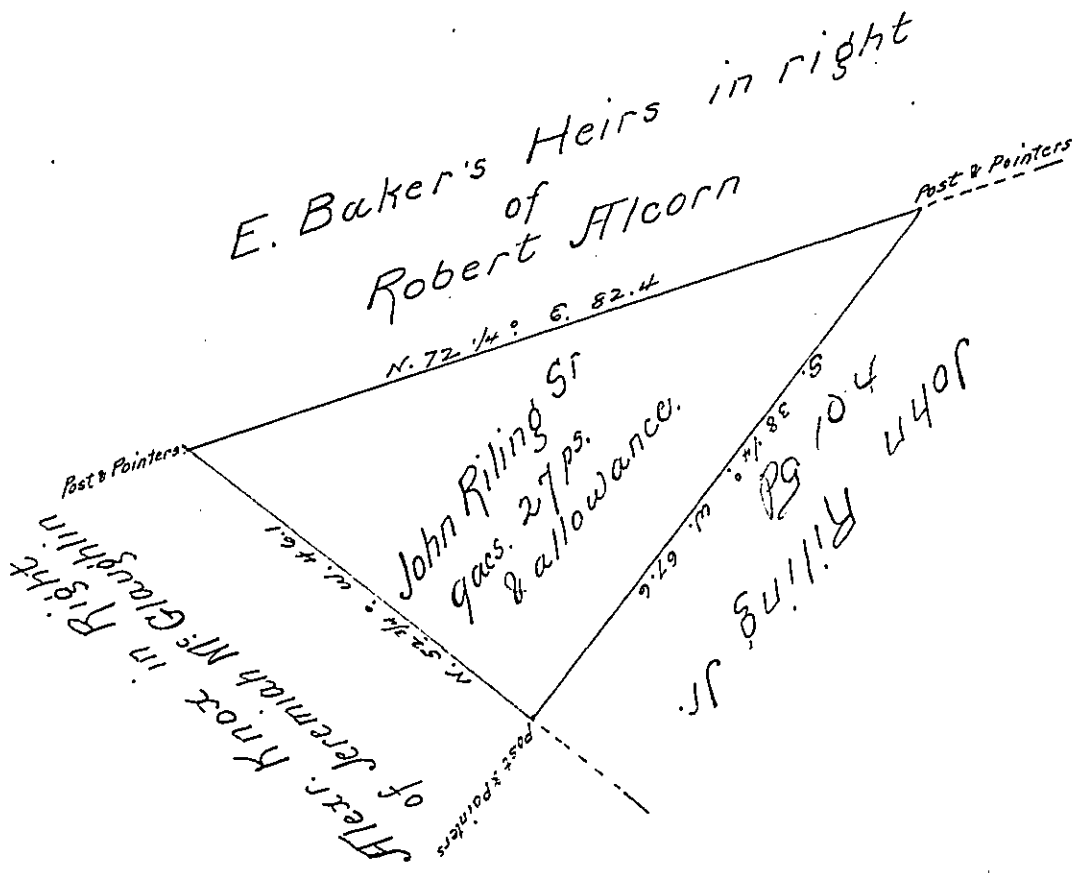 E. Baker's Heirs in right
of
Robert Alcorn
Post & Pointers
N. 72 1/4° E. 82.4
Post & Pointers
John Riling Sr
9acs. 27 ps.
& allowance.
S. 38 1/4° W. 67.6
Pg 104
John
Riling
Jr.
N. 52 3/4° W. 46.1
Alexr. Knox in Right
of Jeremiah McGlaughlin
Post & Pointers